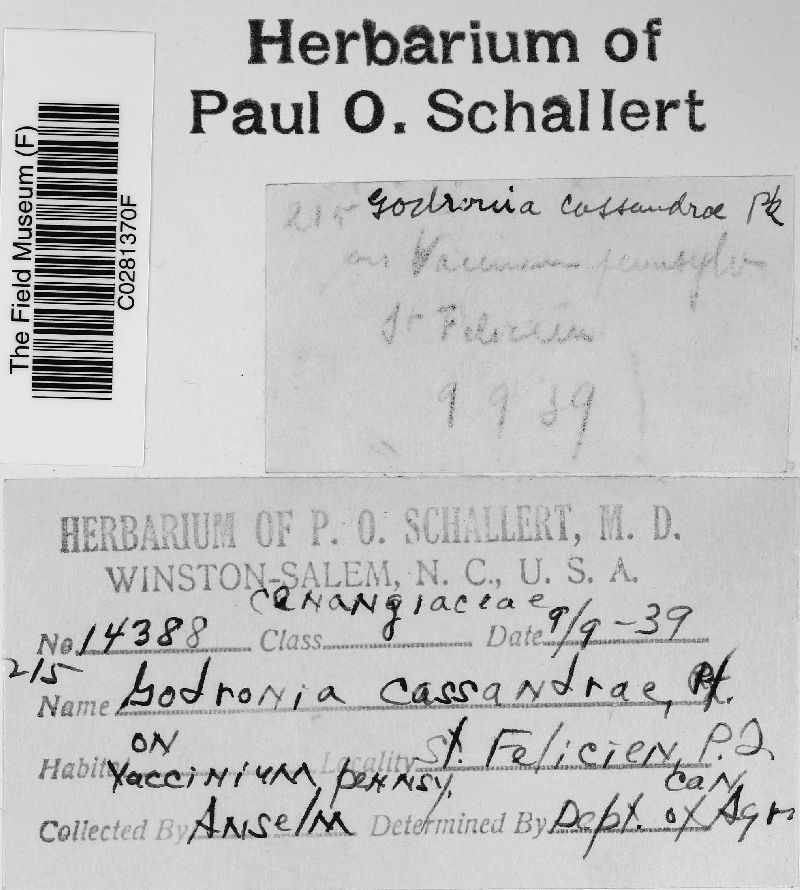 Herbarium of
Paul O. Schallert
The Field Museum (F)
C0281370F
215 Godronia cassandrae Pk
on Vaccinium pennsylv
St Felicien
9 9 39
HERBARIUM OF P. O. SCHALLERT, M. D.
WINSTON-SALEM, N. C., U. S. A.
Cenangiaceae
No. 14388 Class Date 9/9-39
215
Name Godronia cassandrae, Pk.
Habitat on Vaccinium, pennsy. Locality St. Felicien, P.Q. Can
Collected By Anselm Determined By Dept. of Agr